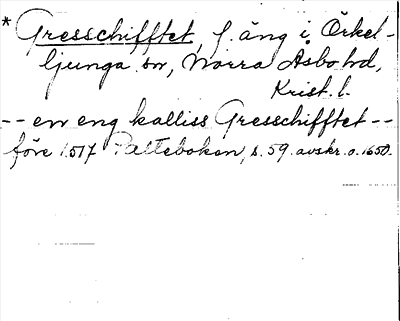 * Gresschifftet, f. äng i Örkel-
ljunga sn, Norra Åsbo hd,
Krist. l.
-- en eng kalliss Gresschifftet --
före 1517 Paltebokan, s. 59. avskr. o. 1650.